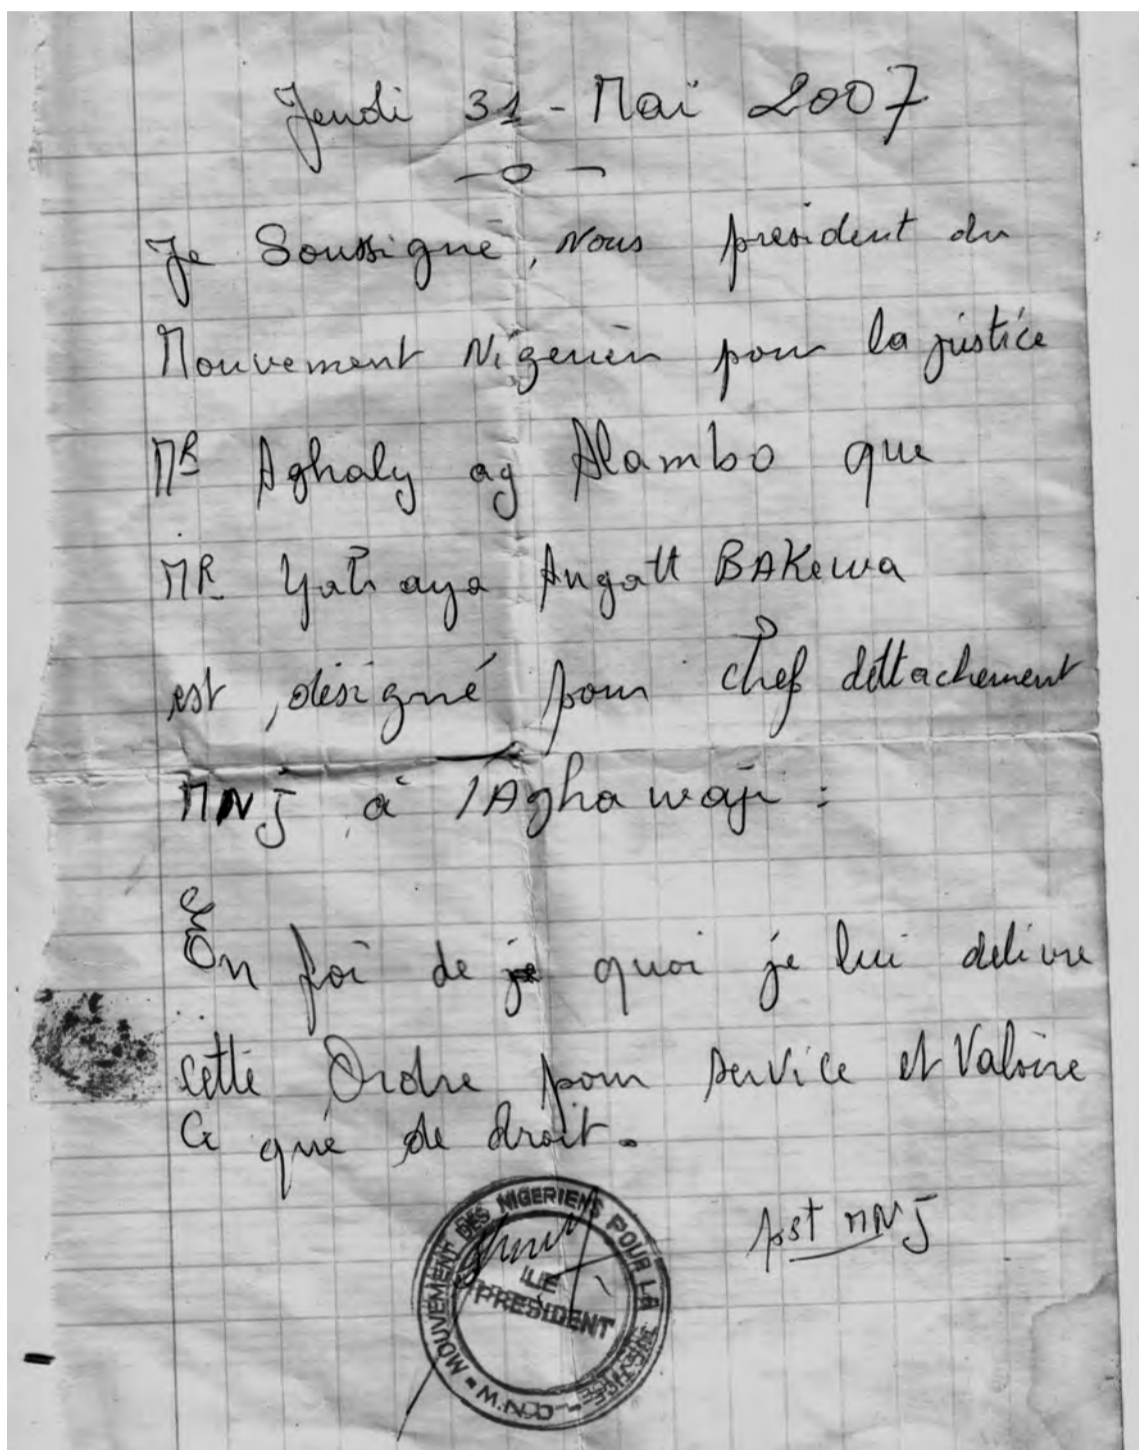 Jeudi 31 - Mai 2007
—o—
Je Soussigné, Nous président du
Mouvement Nigerièn pour la justice
MR Aghaly ag Alambo que
MR Yahaya Angatt BAKewa
est désigné pour chef dettachement
MNJ à TAghawaji :
En foi de quoi je lui delivre
cette Ordre pour service et Valoire
Ce que de droit.
pst MNJ
MOUVEMENT DES NIGERIENS POUR LA JUSTICE
LE
PRESIDENT